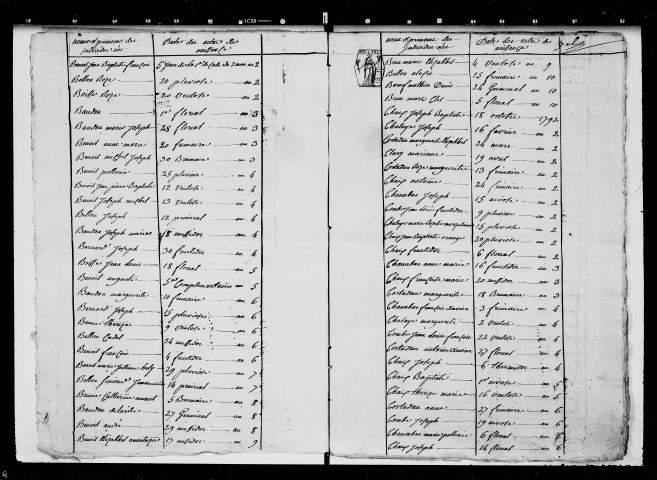 noms et prenoms des individus nés
Dates des actes de naissance
Benoit Jean Baptiste françois 5e Jour de la an 2
Bellon Roze 20 pluviose an 2
Boisse Roze 20 ventose an 2
Baudon 1er floreal an 3
Baudon marie Joseph 28 floreal an 3
Benoit anne marie 20 frimaire an 3
Benoit michel Joseph 30 Brumaire an 3
Benoit 25 pluviose an 4
Benoit Jean pierre Baptiste 12 ventose an 4
Benoit Joseph michel 13 ventose an 4
Bellon Joseph 12 prairial an 4
Baudon Joseph marie 18 messidor an 4
Bernard Joseph 30 fructidor an 4
Boisse Jean louis 18 floreal an 5
Benoit auguste 5e Complementaire an 5
Baudon marguerite 10 frimaire an 6
Bernard Joseph 15 pluviose an 6
Bonne Therese 9 ventose an 6
Bellon Cadet 24 messidor an 6
Benoit françois 4 fructidor an 6
Benoit marie 29 pluviose an 7
Bellon 14 prairial an 7
Bonne Catherine 5 Brumaire an 8
Baudon delaide 27 Germinal an 8
Benoit andré 29 messidor an 8
Benoit Elizabeth 17 messidor an 9
noms et prenoms des individus nés
Dates des actes de naissance
Brun marie Elizabeth 4 ventose an 9
Bellon 15 frimaire an 10
24 Germinal an 10
Brun marie 5 floreal an 10
Chaix Joseph Baptiste 18 octobre 1792
Chalaye Joseph 16 fevrier an 2
Costadau marguerite Elizabeth 24 mars an 2
Clary marianne 19 avril an 2
Costadau Roze marguerite 13 frimaire an 2
Chaix antoine 24 frimaire an 2
Chanabas Joseph 15 nivose an 2
Combe Jean louis fructidor 9 pluviose an 2
Chalaye marie 15 pluviose an 2
Chaix Jean Baptiste orange 20 pluviose an 2
Chaix fructidor 6 floreal an 2
Chanabas anne marie 16 fructidor an 3
Chaix françoise marie 20 messidor an 3
Costadau marguerite 18 Brumaire an 3
Chanabas françois Xavier 3 frimaire an 4
Chalaye marguerite 2 ventose an 4
Combe Jean louis françois 22 ventose an 4
Costadau antoine Xavier 27 floreal an 4
Chaix Joseph 6 thermidor an 4
Chaix Baptiste 1er nivose an 5
Chaix Therese marie 16 ventose an 5
Costadau anne 27 frimaire an 6
Combe Joseph 19 nivose an 6
Chanabas marie 6 floreal an 6
Chaix Joseph 14 floreal an 6